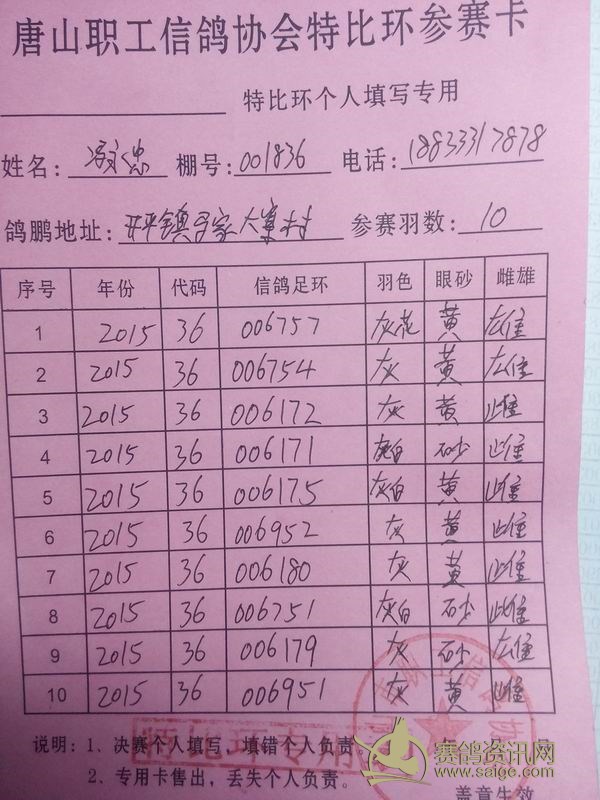 唐山职工信鸽协会特比环参赛卡
特比环个人填写专用
姓名: 棚号: 001836 电话: 18833317878
鸽鹏地址: 开平镇 家大寨村 参赛羽数: 10
序号 年份 代码 信鸽足环 羽色 眼砂 雌雄
1 2015 36 006757 灰花 黄 雄
2 2015 36 006754 灰 黄 雄
3 2015 36 006172 灰 黄 雌
4 2015 36 006171 灰白 砂 雌
5 2015 36 006175 灰白 黄 雌
6 2015 36 006952 灰 黄 雌
7 2015 36 006180 灰 黄 雌
8 2015 36 006751 灰白 砂 雌
9 2015 36 006179 灰 砂 雄
10 2015 36 006951 灰 黄 雌
说明: 1、决赛个人填写, 填错个人负责
2、专用卡售出, 丢失个人负责。
特比环专用
年 月 日
盖章生效
赛鸽资讯网
www.saige.com